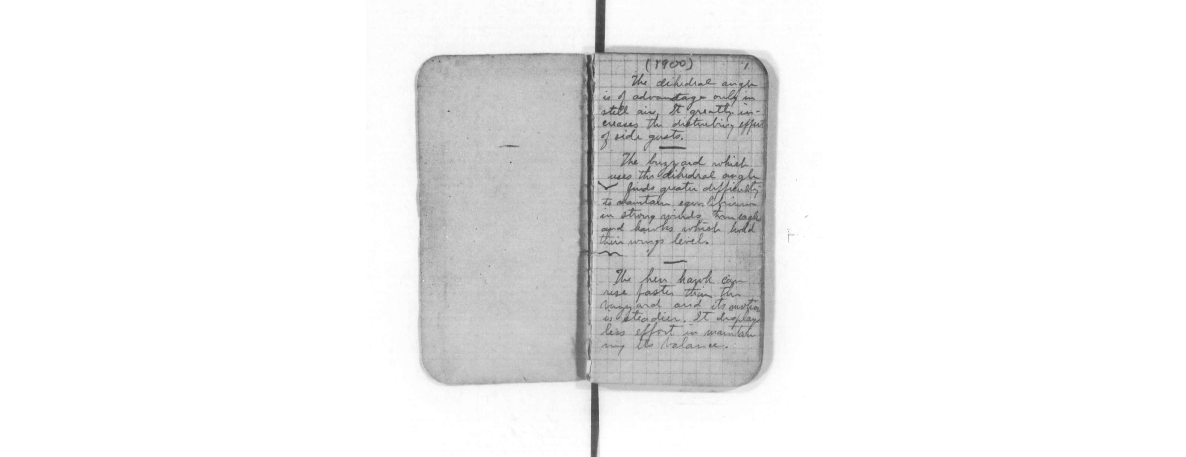 (1900) 1.
The dihedral angle
is of advantage only in
still air. It greatly in-
creases the disturbing effect
of side gusts.
The buzzard which
uses the dihedral angle
finds greater difficulty
to maintain equilibrium
in strong winds than eagles
and hawks which hold
their wings level.
The hen hawk can
rise faster than the
buzzard and its motion
is steadier. It displays
less effort in maintain
ing its balance.